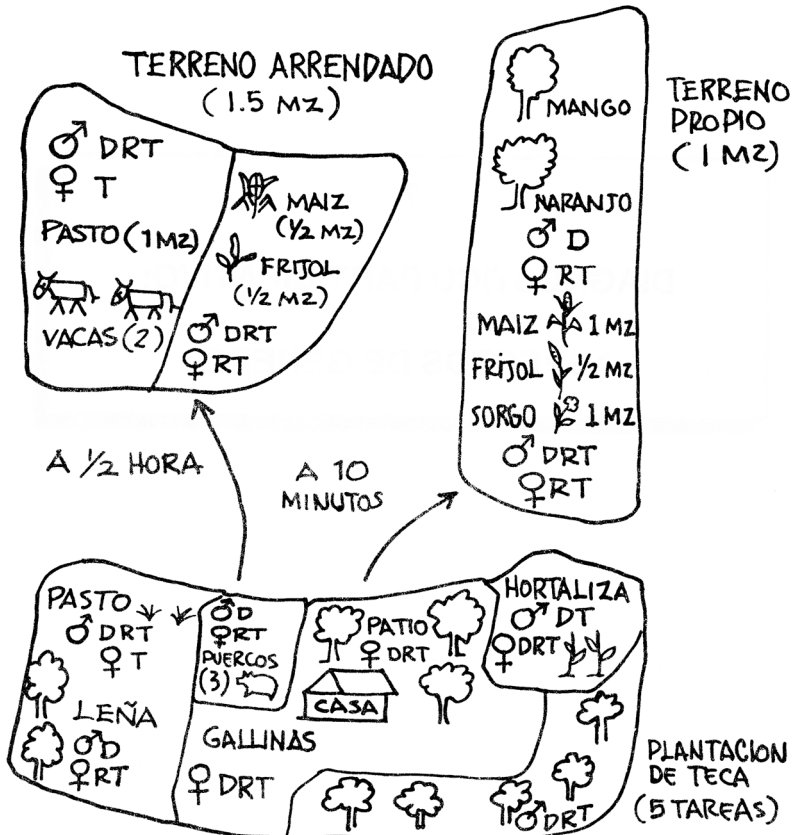 TERRENO ARRENDADO
(1.5 MZ)
♂ DRT
♀ T
PASTO (1MZ)
VACAS (2)
MAIZ
(½ MZ)
FRIJOL
(½ MZ)
♂ DRT
♀ RT
MANGO
NARANJO
♂ D
♀ RT
MAIZ 1 MZ
FRIJOL ½ MZ
SORGO 1 MZ
♂ DRT
♀ RT
TERRENO
PROPIO
(1 MZ)
A ½ HORA
A 10
MINUTOS
PASTO
♂ DRT
♀ T
LEÑA
♂ D
♀ RT
♂ D
♀ RT
PUERCOS
(3)
GALLINAS
♀ DRT
PATIO
♀ DRT
CASA
HORTALIZA
♂ DT
♀ DRT
♂ DRT
PLANTACION
DE TECA
(5 TAREAS)